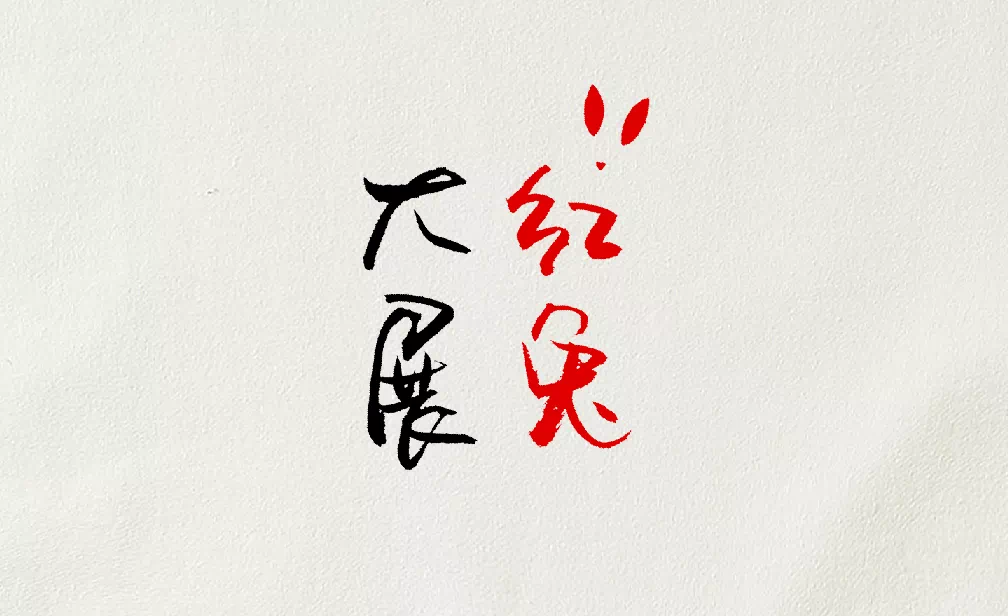 红兔
大展